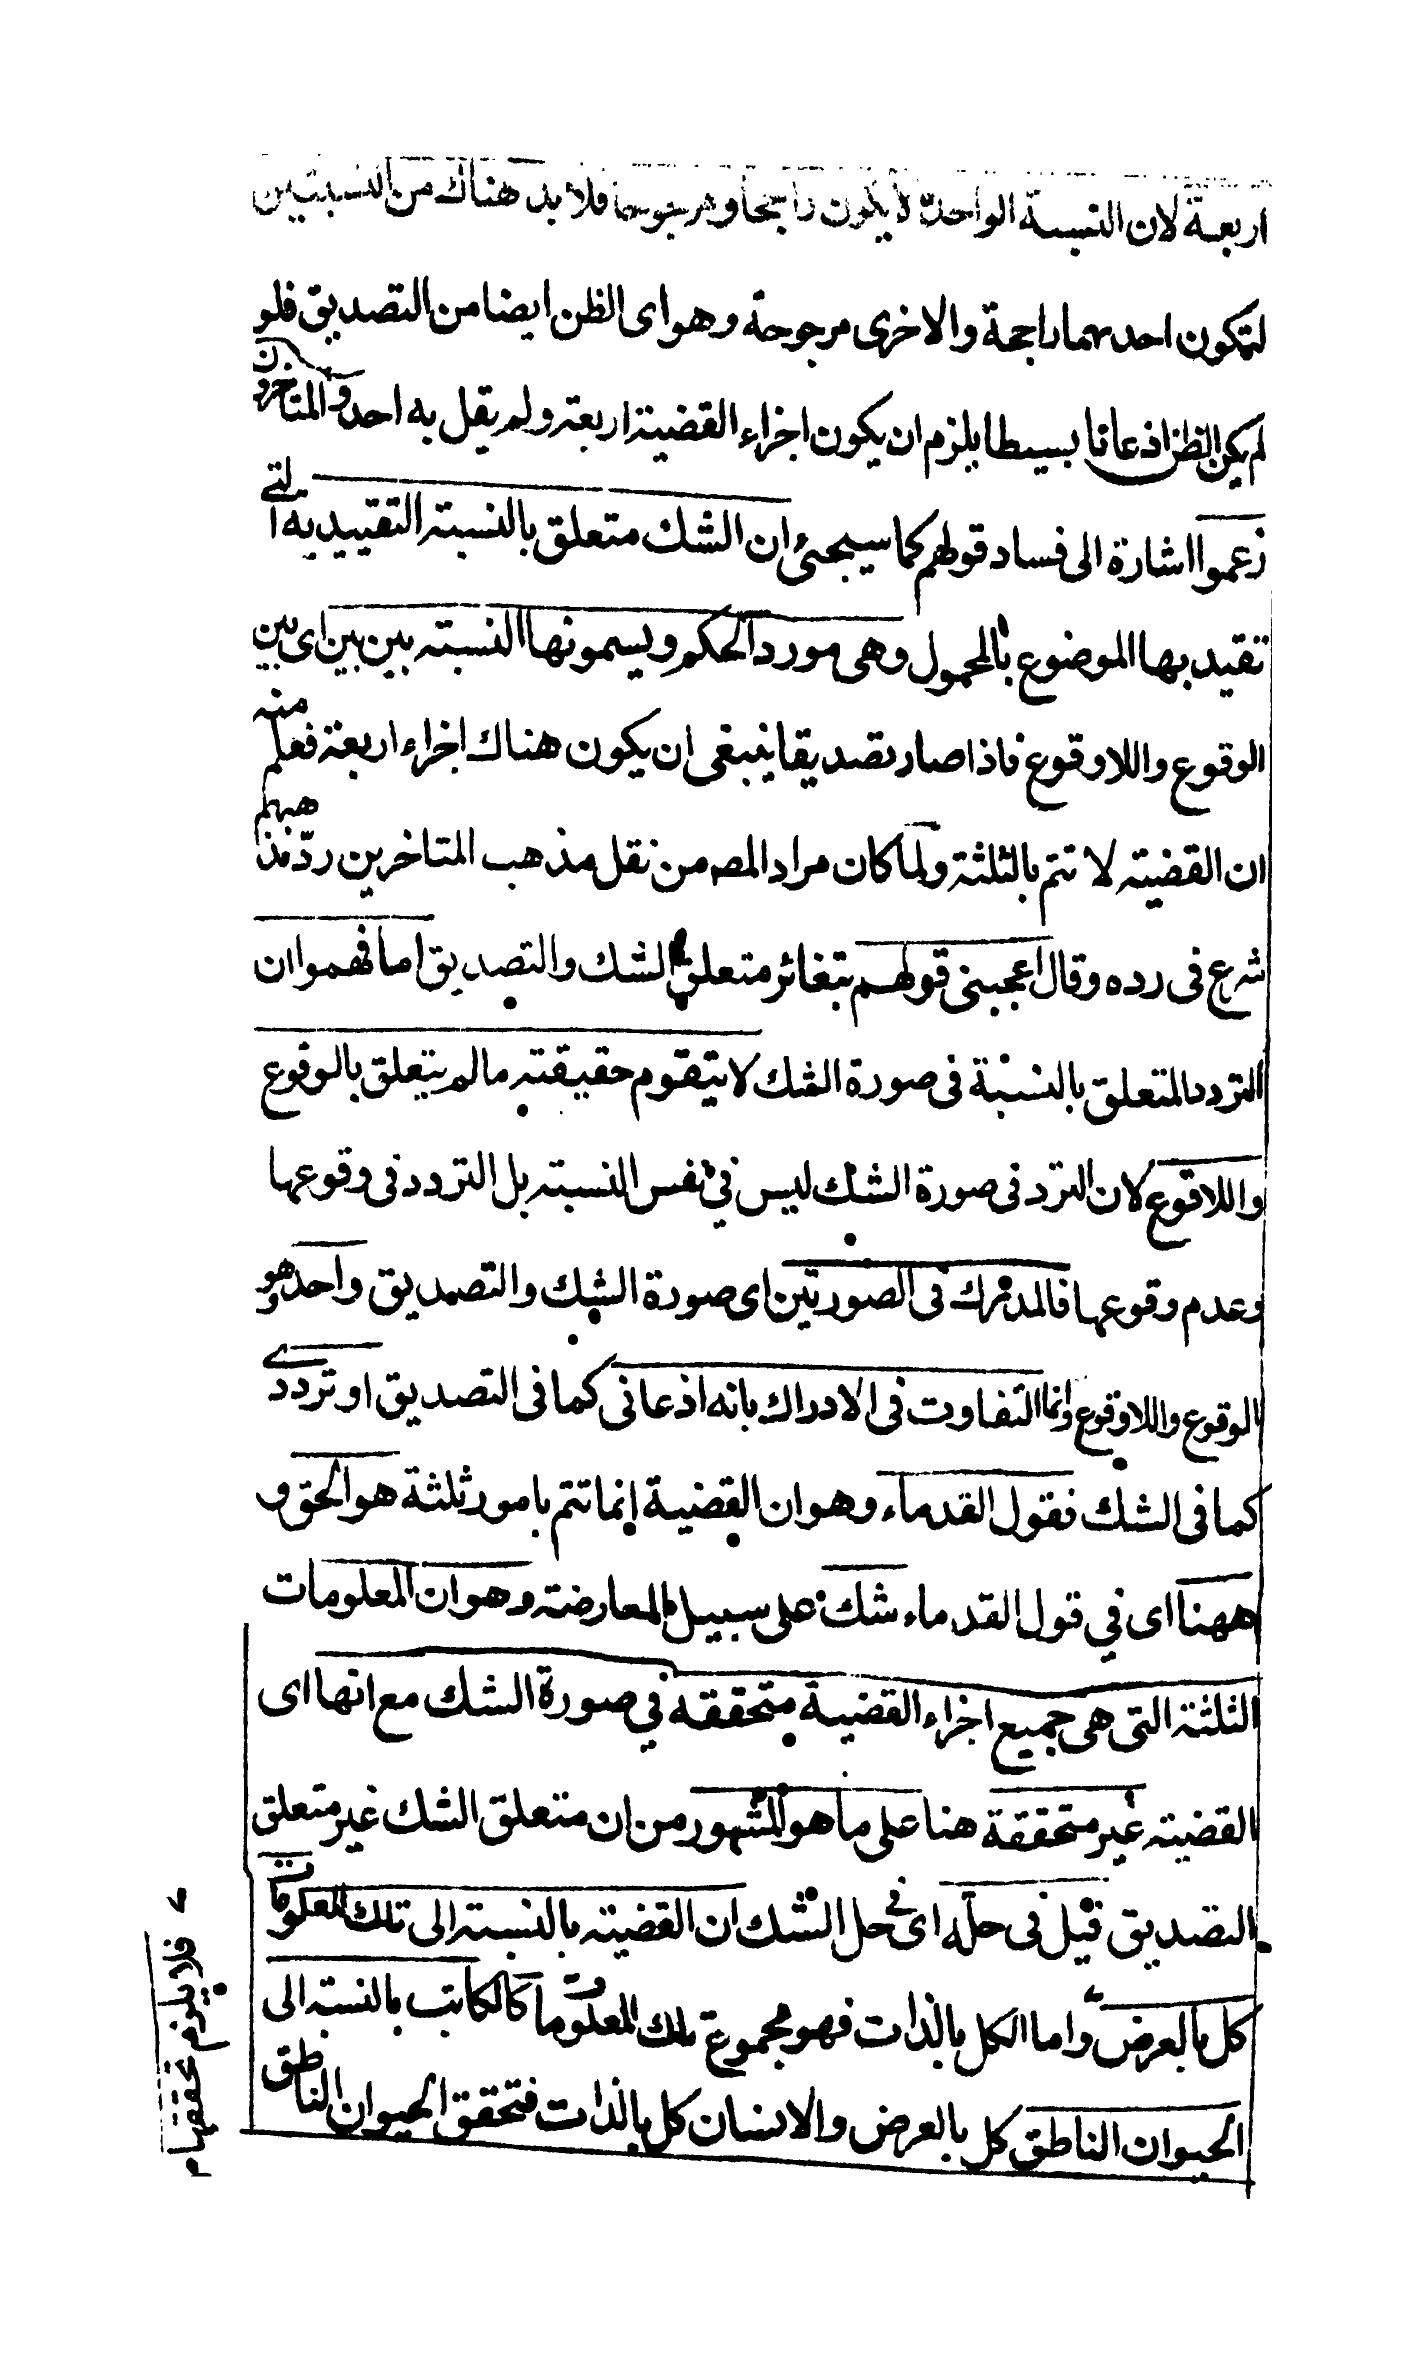 اربعة لان النسبة الواحدة لا يكون راجحا ومرجوحا فلا بد هناك من النسبتين
لتكون احدىهما راجحة والاخرى مرجوحة وهو اى الظن ايضا من التصديق فلو
لم يكن الظن اذعانا بسيطا يلزم ان يكون اجزاء القضية اربعة ولم يقل به احد والمتاخرون
زعموا اشارة الى فساد قولهم كما سيجئ ان الشك متعلق بالنسبة التقييدية التى
تقيد بها الموضوع بالمحمول وهى مورد الحكم ويسمونها النسبة بين بين اى بين
الوقوع واللاوقوع فاذا صار تصديقا ينبغى ان يكون هناك اجزاء اربعة فعلم منه
ان القضية لا تتم بالثلثة ولما كان مراد المصه من نقل مذهب المتاخرين رد مذهبهم
شرع فى رده وقال اعجبنى قولهم بتغائر متعلق الشك والتصديق اما فهموا ان
التردد المتعلق بالنسبة فى صورة الشك لا يتقوم حقيقته ما لم يتعلق بالوقوع
واللاقوع لان الترد فى صورة الشك ليس في نفس النسبة بل التردد فى وقوعها
وعدم وقوعها فالمدرك فى الصورتين اى صورة الشك والتصديق واحد وهو
الوقوع واللاوقوع وانما التفاوت فى الادراك بانه اذعانى كما فى التصديق او ترددے
كما فى الشك فقول القدماء وهو ان القضية انما تتم بامور ثلثة هو الحق و
ههنا اى في قول القدماء شك على سبيل المعارضة وهو ان المعلومات
الثلثة التى هى جميع اجزاء القضية متحققة في صورة الشك مع انها اى
القضية غير متحققة هنا على ما هو المشهور من ان متعلق الشك غير متعلق
التصديق قيل فى حله اى فى حل الشك ان القضية بالنسبة الى تلك المعلومات
كل بالعرض واما الكل بالذات فهو مجموع تلك المعلومات كالكاتب بالنسبة الى
الحيوان الناطق كل بالعرض والانسان كل بالذات فتحقق الحيوان الناطق
فلا يلزم تحققها م